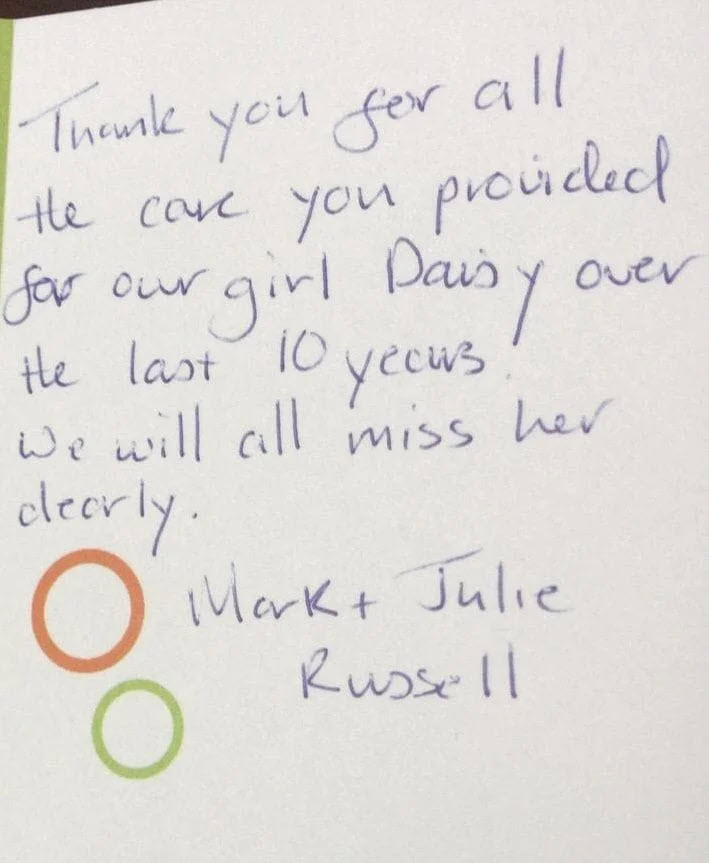 Thank you for all
the care you provided
for our girl Daisy over
the last 10 years.
We will all miss her
dearly.
Mark + Julie
Russell